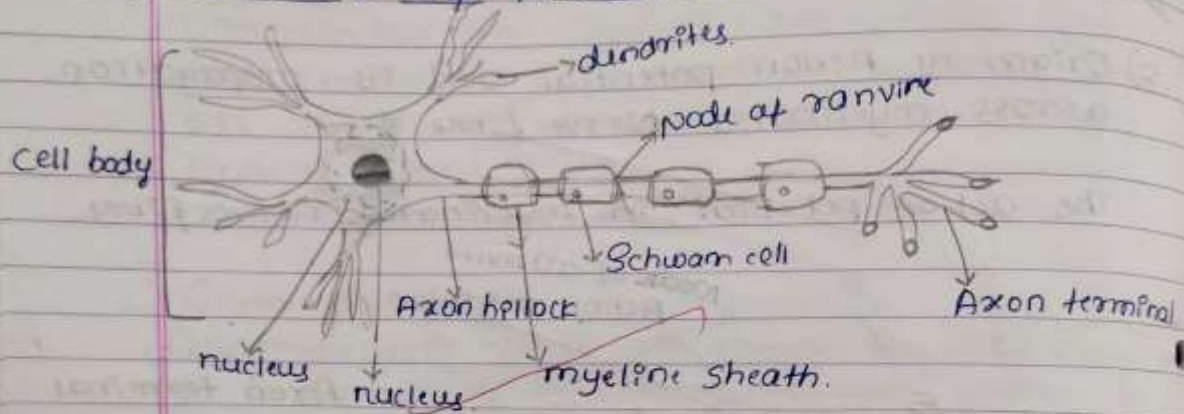 dendrites.
Node of ranvire
Cell body
Schwam cell
Axon hellock
Axon terminal
nucleus
nucleus
myeline Sheath.